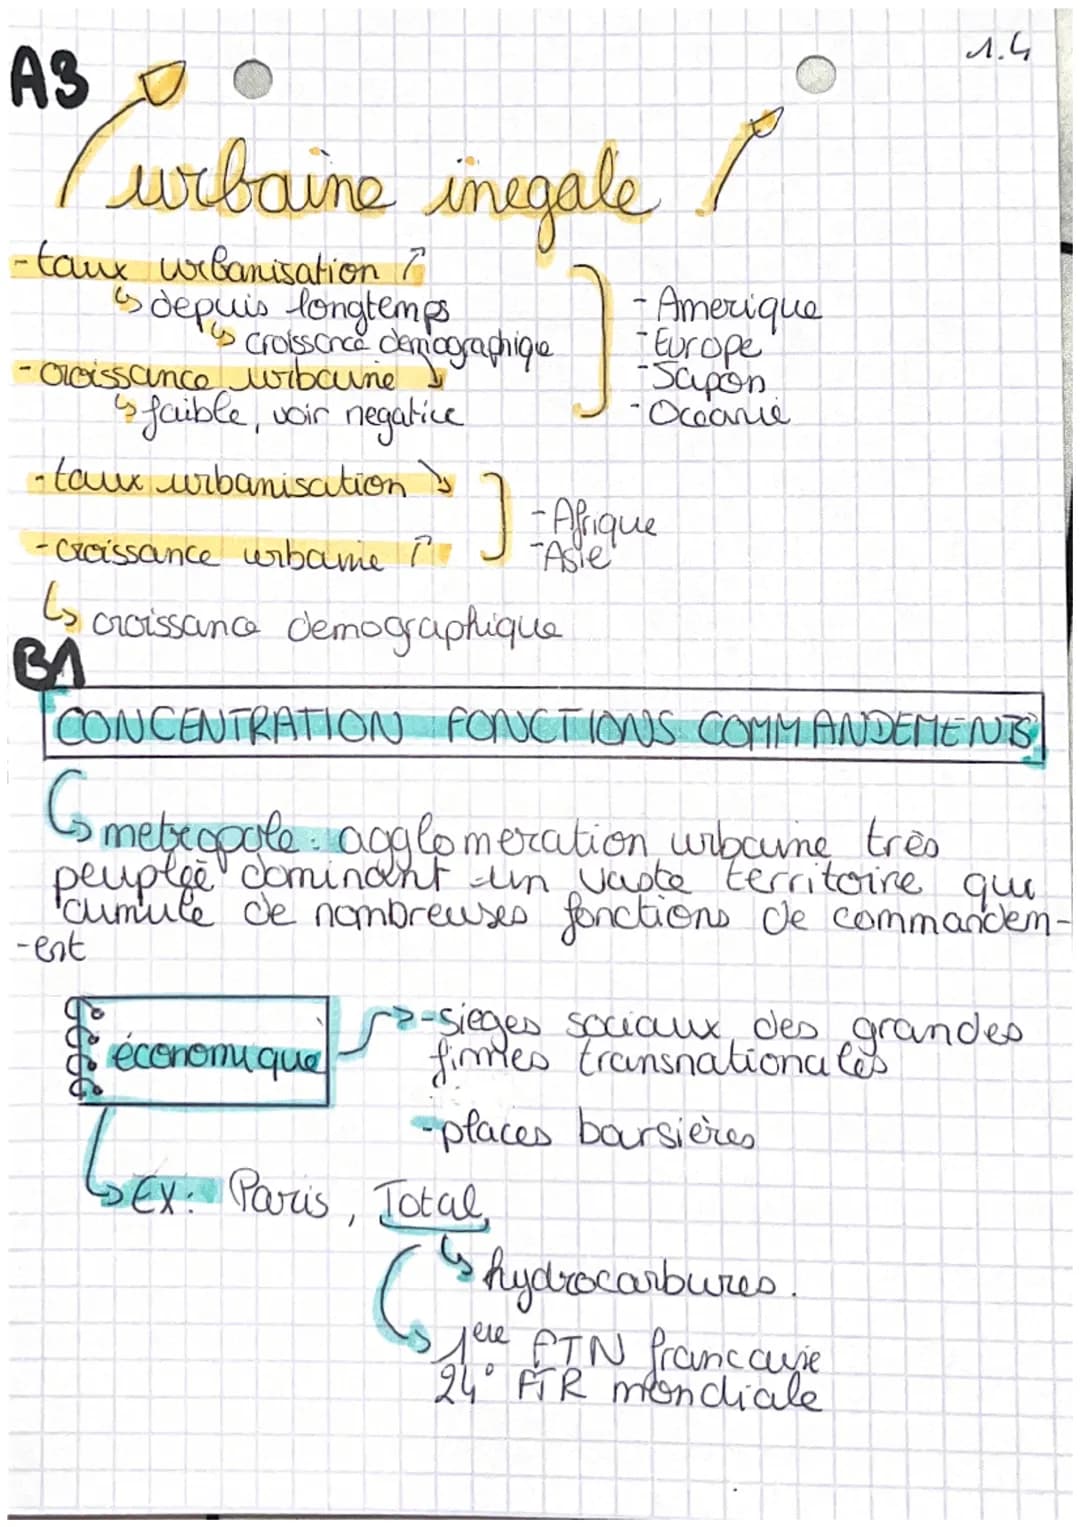 1.4
A3
↗ urbaine inegale ↗
- taux urbanisation ↗
↳ depuis longtemps
↳ croissance demographique
- croissance urbaine ↘
↳ faible, voir negative
- Amerique
- Europe
- Japon
- Oceanie
- taux urbanisation ↘
- croissance urbaine ↗
- Afrique
- Asie
↳ croissance demographique
B1
CONCENTRATION FONCTIONS COMMANDEMENTS
↳ metropole : agglomeration urbaine très
peuplée dominant un vaste territoire qui
cumule de nombreuses fonctions de commandem-
-ent
économique
- sieges sociaux des grandes
firmes transnationales
- places boursières
↳ EX: Paris, Total
↳ hydrocarbures.
↳ 1ere FTN francaise
24° FTR mondiale